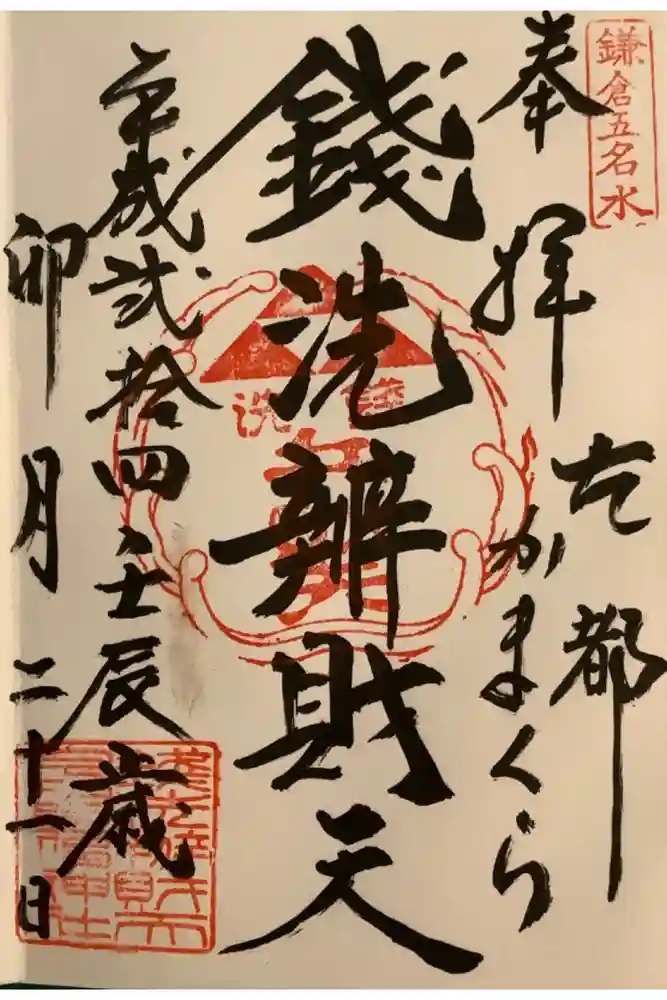 鎌倉五名水
奉拝
古都
かまくら
銭洗辨財天
銭洗
平成弐拾四壬辰歳
卯月二十一日